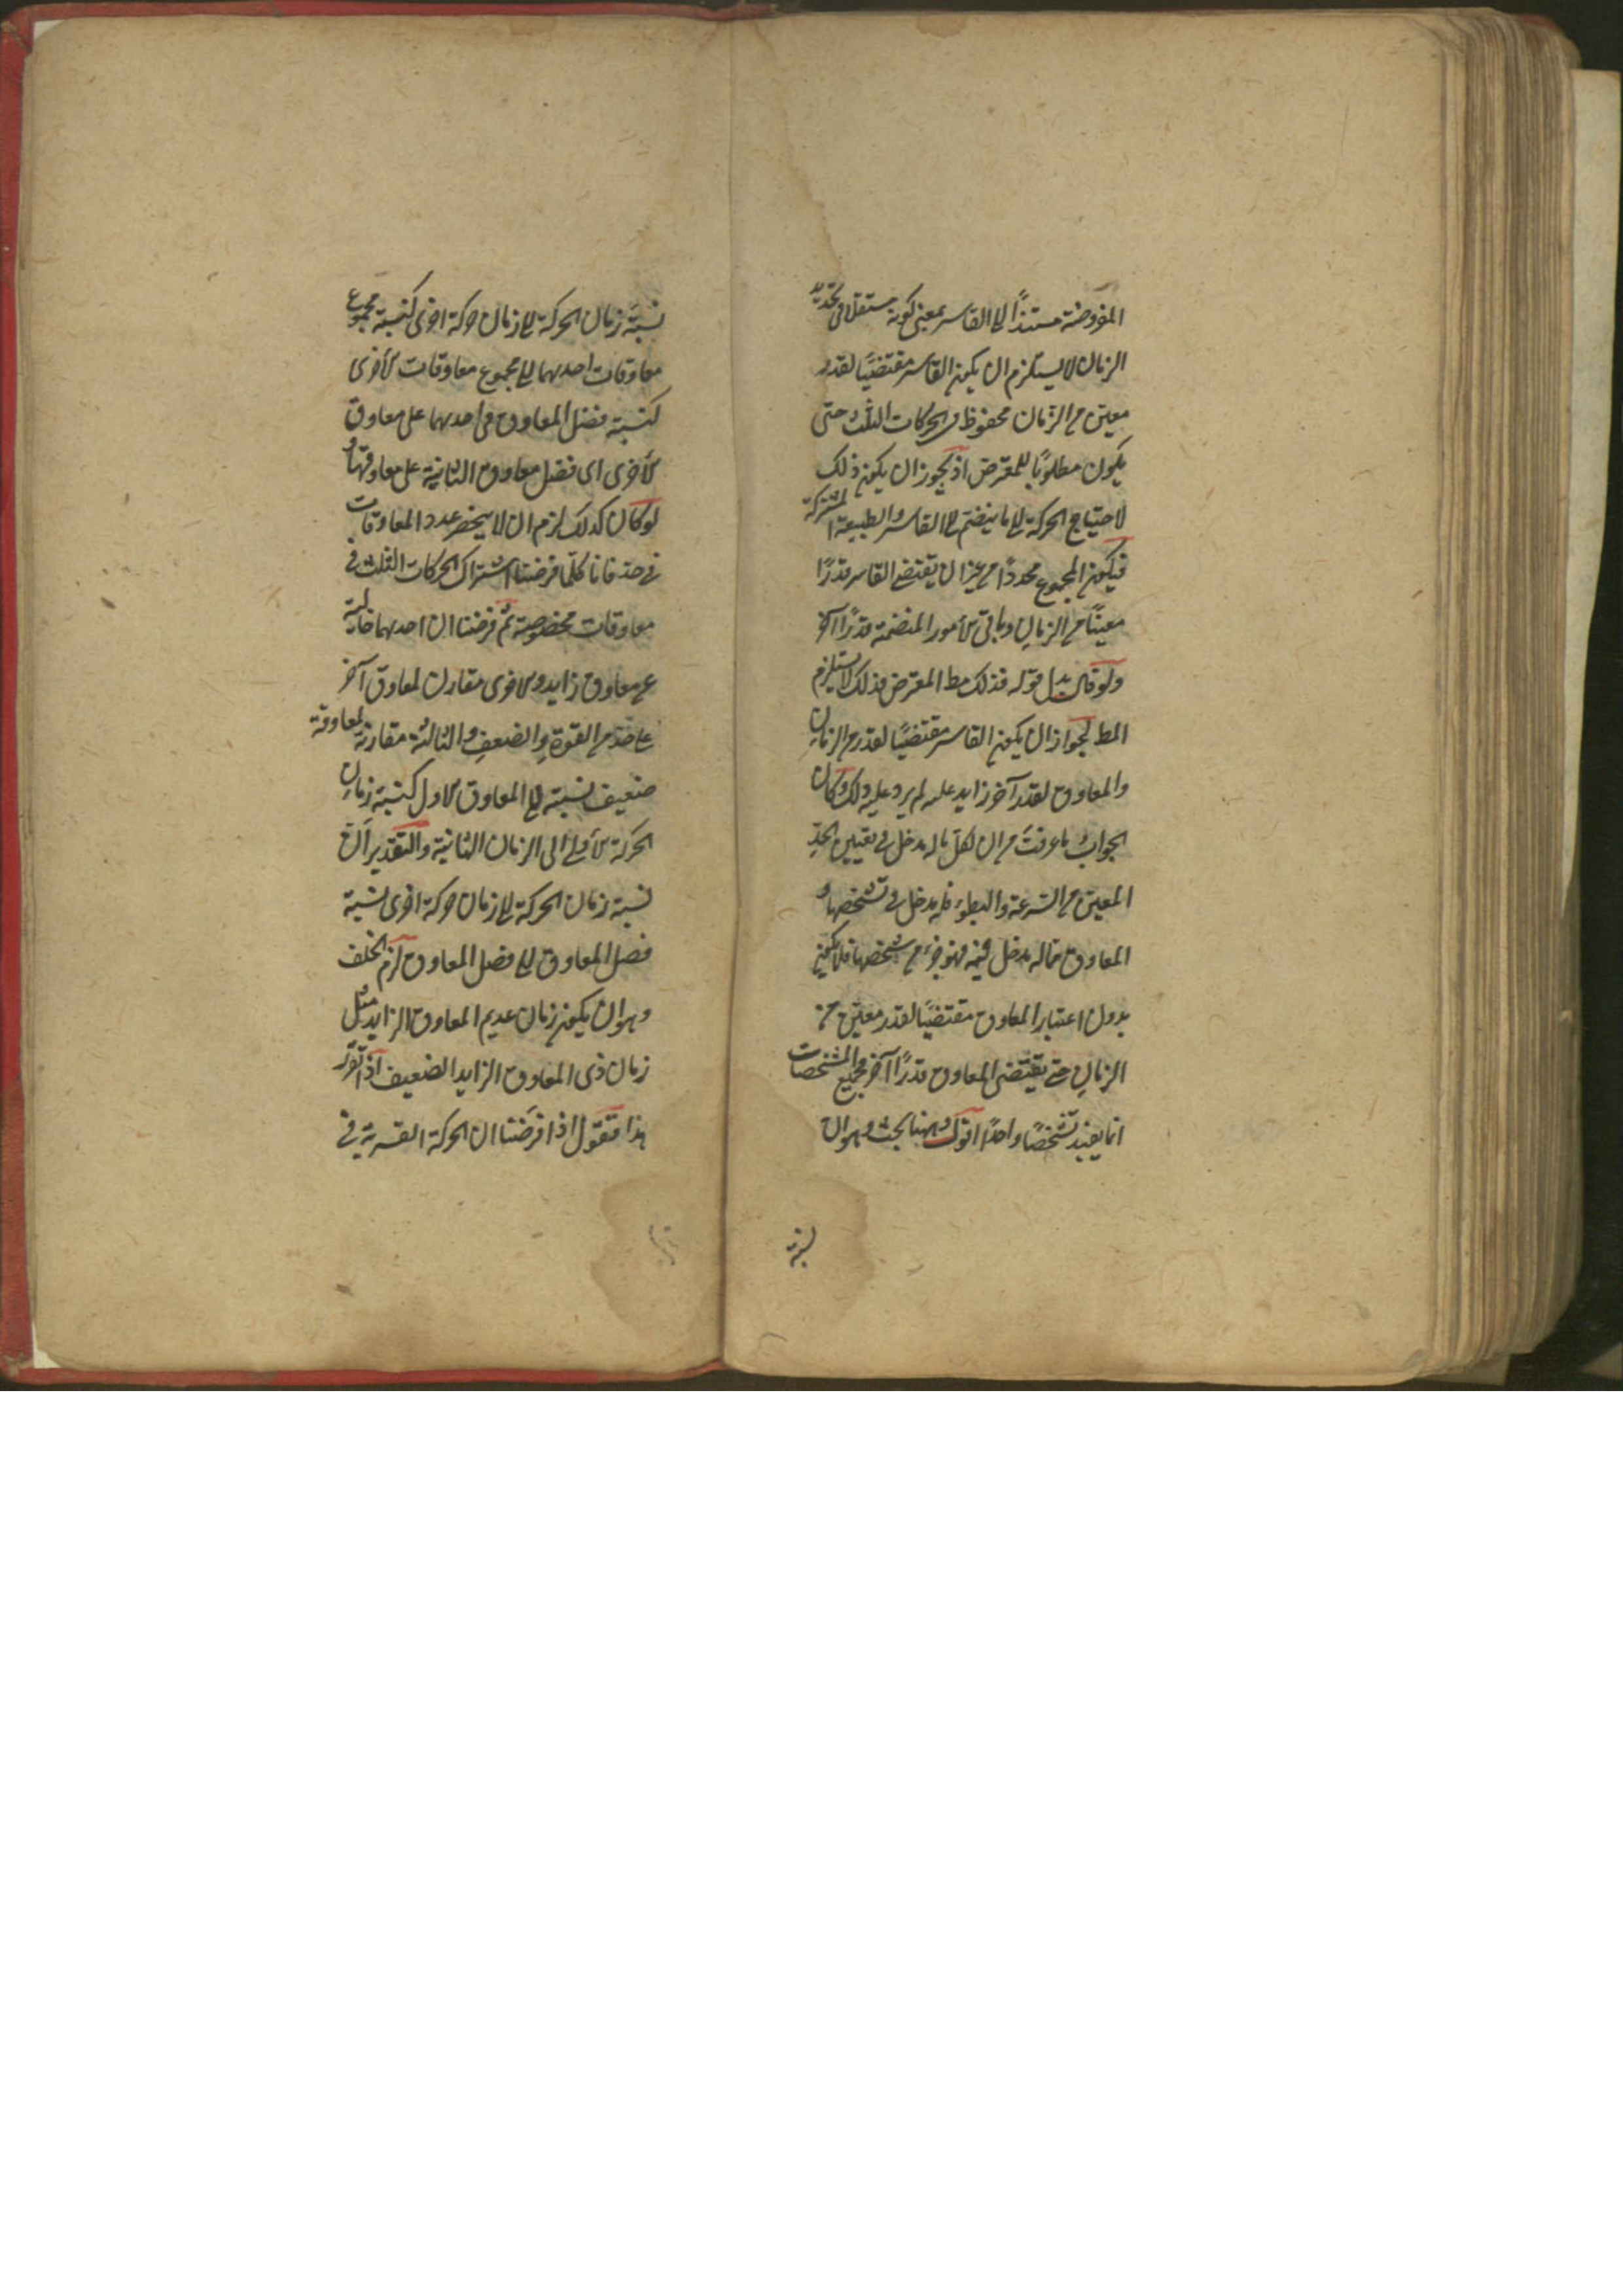 المفروضة مستندًا الى القاسر بمعنى كونه مستقلا فى تحديد
الزمان لا يستلزم ان يكون القاسر مقتضيًا لقدر
معين من الزمان محفوظ فى الحركات الثلث حتى
يكون مطلوبًا للمعترض اذ يجوز ان يكون ذلك
لاحتياج الحركة الى ما ينضم الى القاسر والطبيعة المشتركة
فيكون المجموع محددًا من غير ان يقتضى القاسر قدرًا
معينًا من الزمان وباقى الأمور المنضمة قدرًا آخر
ولو قال بدل قوله فذلك مط المعترض فذلك لا يستلزم
المط لجواز ان يكون القاسر مقتضيًا لقدر من الزمان
والمعاوق لقدر آخر زايد عليه لم يرد عليه ذلك وكان
الجواب ما عرفت من ان لكل ما له مدخل فى تعيين الحد
المعين من السرعة والبطوء فله مدخل فى تشخصها و
المعاوق مما له مدخل فيه فهو جزء من مشخصها فلا يكون
بدون اعتبار المعاوق مقتضيًا لقدر معين من
الزمان حتى يقتضى المعاوق قدرًا آخر ومجموع المشخصات
انما يفيد تشخصًا واحدًا اقول وههنا بحث وهو ان
نسبة
نسبة زمان الحركة الى زمان حركة اخرى كنسبة مجموع
معاوقات احديهما الى مجموع معاوقات الأخرى
كنسبة فضل المعاوق فى احديهما على معاوق
الأخرى اى فضل معاوق الثانية على معاوقتها و
لو كان كذلك لزم ان لا ينحصر عدد المعاوقات
فى حد فانا كلما فرضنا اشتراك الحركات الثلث فى
معاوقات مخصوصة ثم فرضنا ان احديهما خالية
عن معاوق زايد والاخرى مقارن لمعاوق آخر
على حد من القوة والضعف والثالثة مقارنة لمعاوقة
ضعيف نسبته الى المعاوق الاول كنسبة زمان
الحركة الأولى الى الزمان الثانية والتقدير ان
نسبة زمان الحركة الى زمان حركة اخرى نسبة
فضل المعاوق الى فضل المعاوق لزم الخلف
وهو ان يكون زمان عديم المعاوق الزايد مثل
زمان ذى المعاوق الزايد الضعيف اذا تقرر
هذا فنقول اذا فرضنا ان الحركة القسرية فى